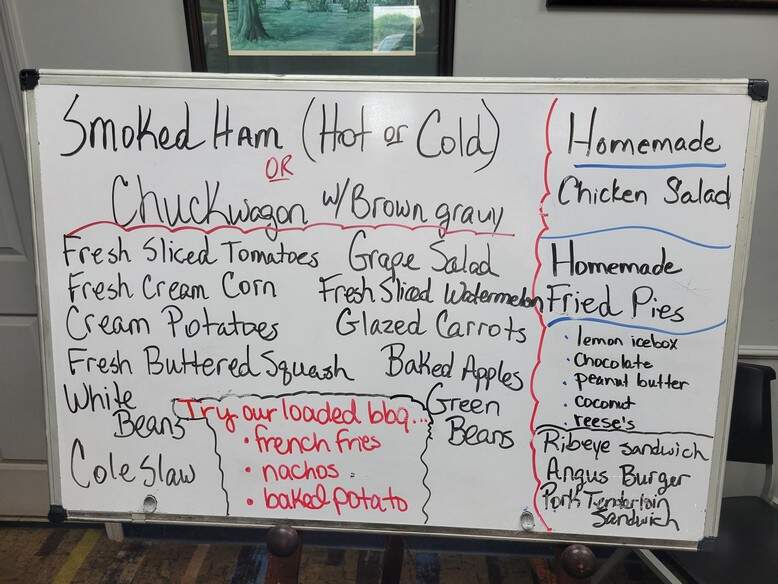 Smoked Ham (Hot or Cold)
OR
Chuckwagon w/Brown gravy
Fresh Sliced Tomatoes
Fresh Cream Corn
Cream Potatoes
Fresh Buttered Squash
White
Beans
Cole Slaw
Grape Salad
Fresh Sliced Watermelon
Glazed Carrots
Baked Apples
Green
Beans
Try our loaded bbq...
• french fries
• nachos
• baked potato
Homemade
Chicken Salad
Homemade
Fried Pies
• lemon icebox
• Chocolate
• peanut butter
• coconut
• reese's
Ribeye sandwich
Angus Burger
Pork Tenderloin
Sandwich